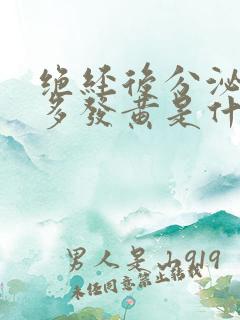 绝经后分泌
多發黄是什
男人是山919
未经同意禁止转载